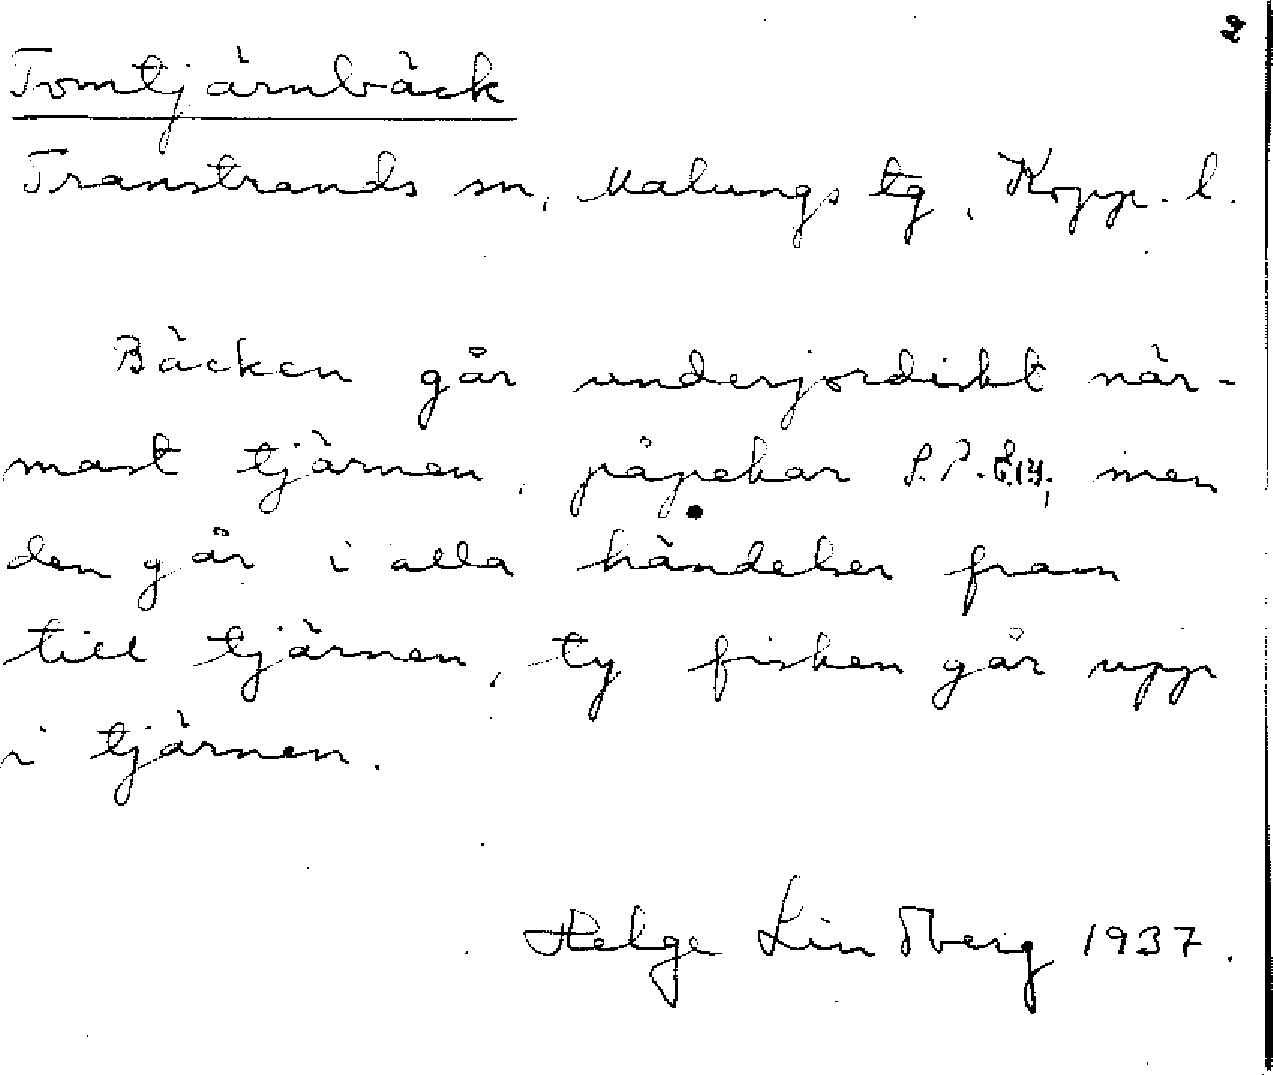 2
Tomtjärnbäck
Transtrands sn, Malungs tg, Kopp. l.
Bäcken går underjordiskt när-
mast tjärnen, påpekar men
den går i alla händelser fram
till tjärnen, ty fisken går upp
i tjärnen.
Helge Lindberg 1937.